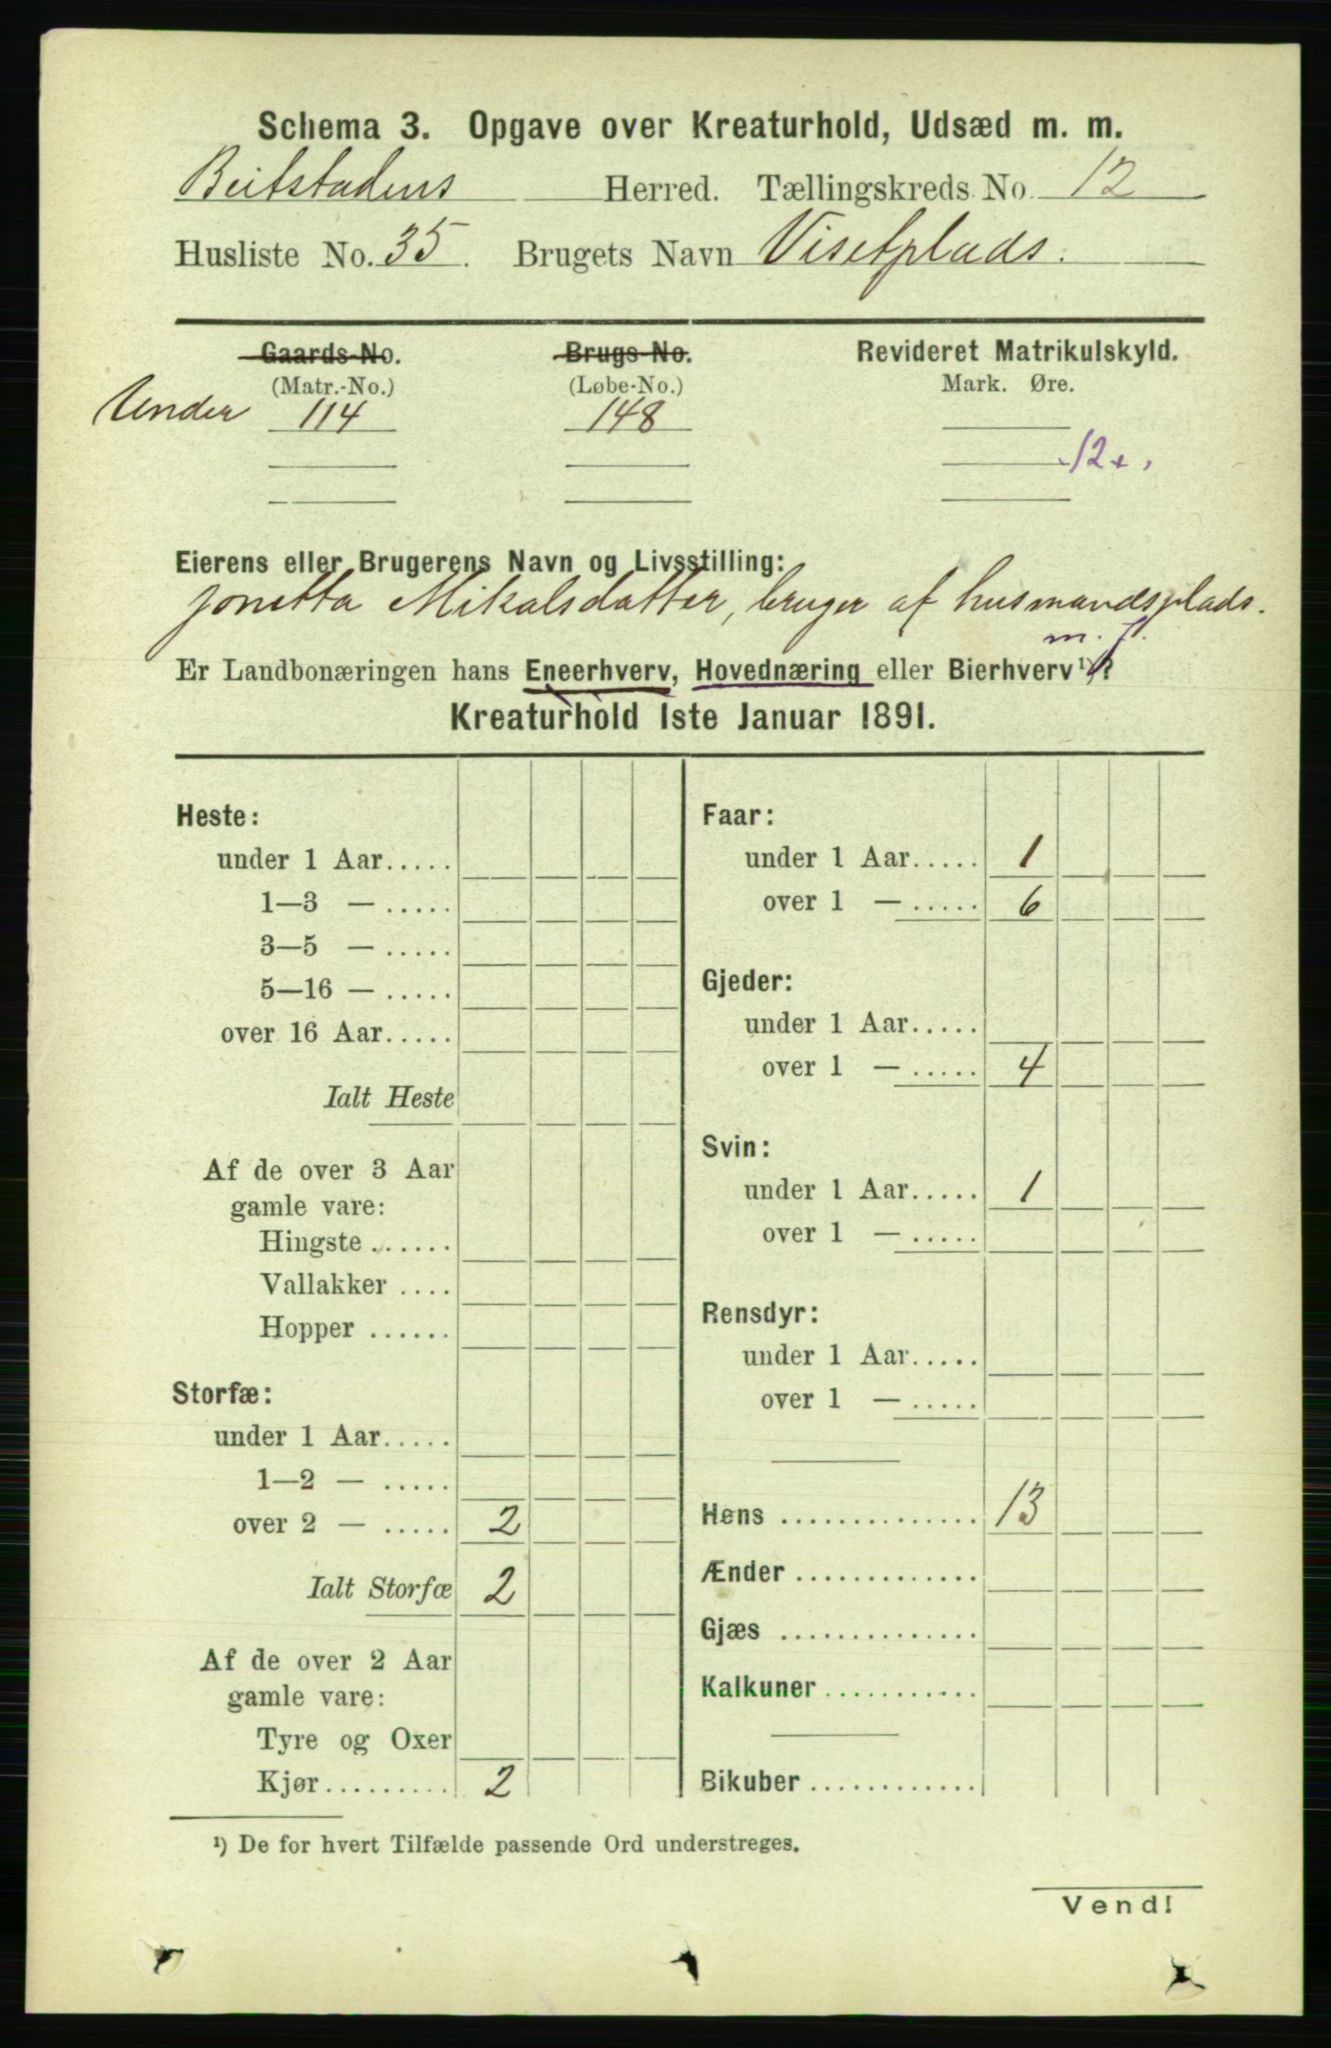 Schema 3. Opgave over Kreaturhold, Udsæd m. m.
Beitstadens Herred. Tællingskreds No. 12
Husliste No. 35. Brugets Navn Visetplads.
Gaards-No. Brugs-No. Revideret Matrikulskyld.
(Matr.-No.) (Løbe-No.) Mark. Øre.
Under 114 148
12
Eierens eller Brugerens Navn og Livsstilling:
Jonetta Mikalsdatter, bruger af husmandsplads.
m. J.
Er Landbonæringen hans Eneerhverv, Hovednæring eller Bierhverv ¹)?
Kreaturhold 1ste Januar 1891.
Heste:
under 1 Aar.....
1—3 — .....
3—5 — .....
5—16 — .....
over 16 Aar.....
Ialt Heste
Af de over 3 Aar
gamle vare:
Hingste ......
Vallakker ....
Hopper ......
Storfæ:
under 1 Aar.....
1—2 — .....
over 2 — ..... 2
Ialt Storfæ 2
Af de over 2 Aar
gamle vare:
Tyre og Oxer
Kjør......... 2
Faar:
under 1 Aar..... 1
over 1 — ..... 6
Gjeder:
under 1 Aar.....
over 1 — ..... 4
Svin:
under 1 Aar..... 1
over 1 — .....
Rensdyr:
under 1 Aar.....
over 1 — .....
Høns .............. 13
Ænder .............
Gjæs ..............
Kalkuner ...........
Bikuber ............
¹) De for hvert Tilfælde passende Ord understreges.
Vend!